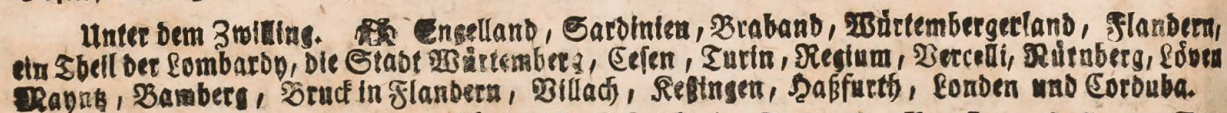 Unter dem Zwilling. Engelland, Sardinien, Braband, Würtembergerland, Flandern,
ein Theil der Lombardy, die Stadt Würtemberg, Cesen, Turin, Regium, Vercelli, Nürnberg, Löven
Mayntz, Bamberg, Bruck in Flandern, Villach, Keßingen, Haßfurth, Londen und Corduba.